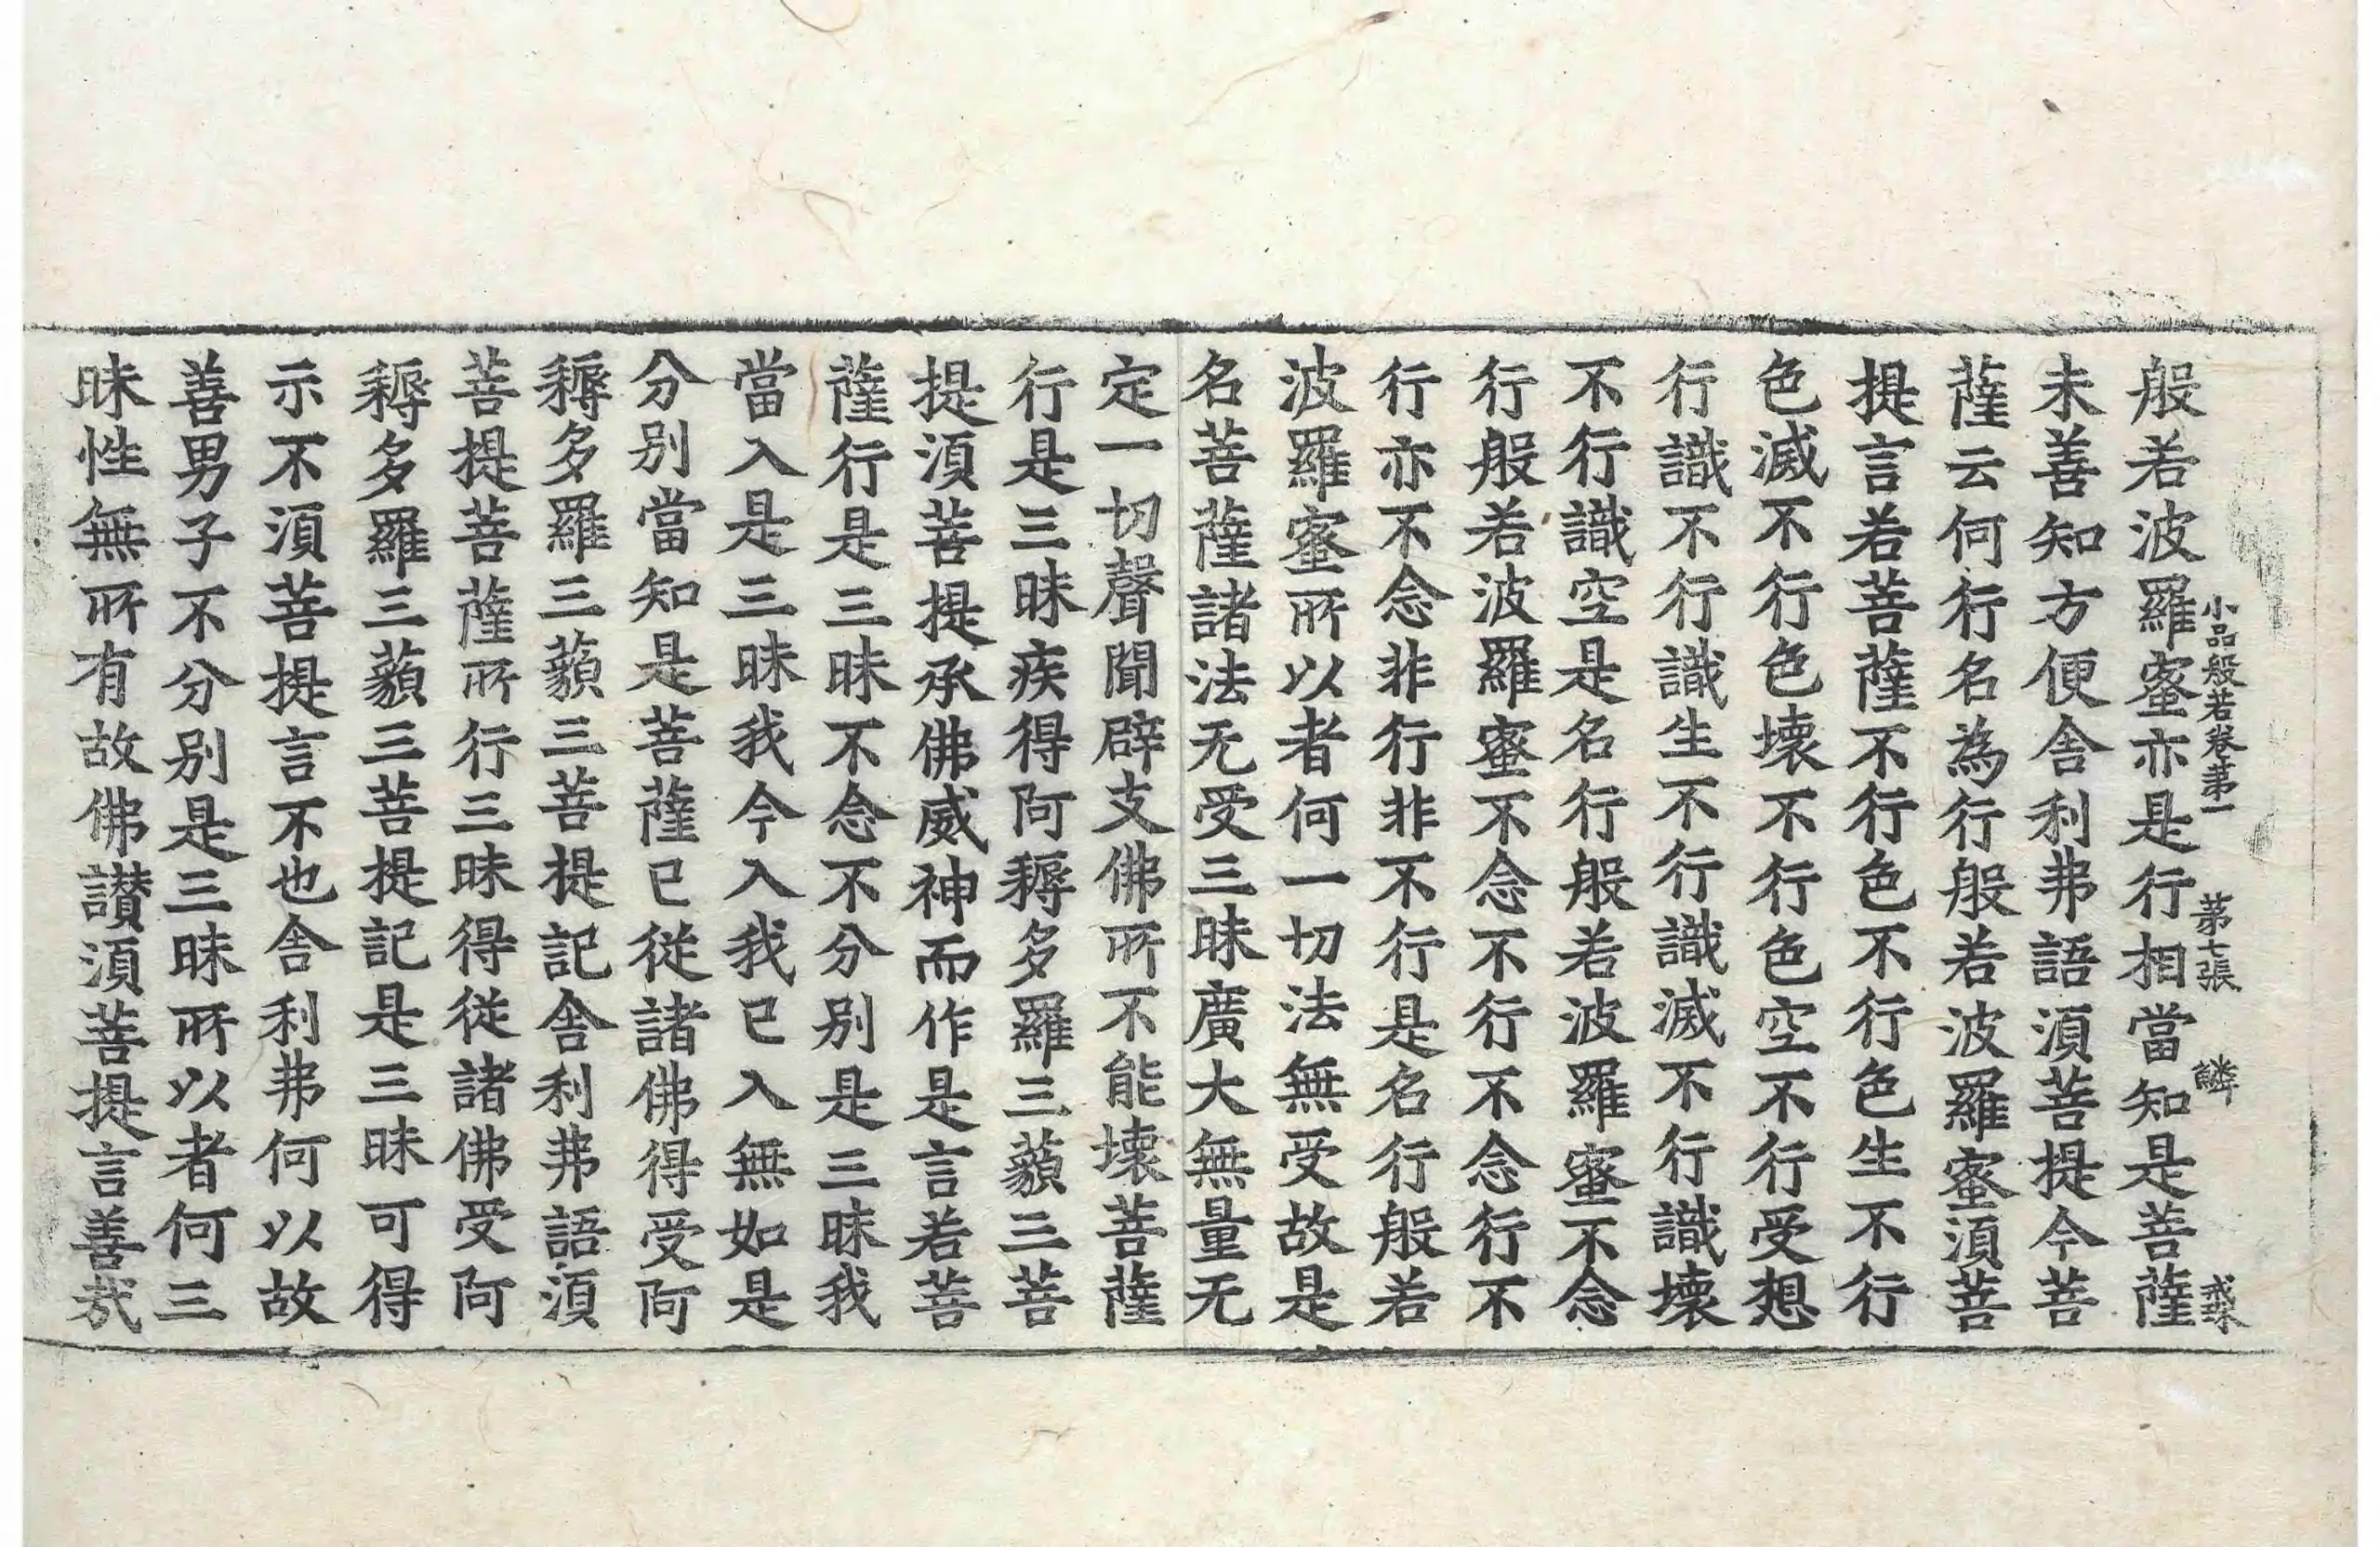 般若波羅蜜亦是行相當知是菩薩
小品般若卷苐一 苐七張 鱗
未善知方便舍利弗語湏菩提今菩
薩云何行名為行般若波羅蜜湏菩
提言若菩薩不行色不行色生不行
色滅不行色壞不行色空不行受想
行識不行識生不行識滅不行識壞
不行識空是名行般若波羅蜜不念
行般若波羅蜜不念不行不念行不
行亦不念非行非不行是名行般若
波羅蜜所以者何一切法無受故是
名菩薩諸法无受三昧廣大無量无
定一切聲聞辟支佛所不能壞菩薩
行是三昧疾得阿耨多羅三藐三菩
提湏菩提承佛威神而作是言若菩
薩行是三昧不念不分別是三昧我
當入是三昧我今入我已入無如是
分別當知是菩薩已從諸佛得受阿
耨多羅三藐三菩提記舍利弗語湏
菩提菩薩所行三昧得從諸佛受阿
耨多羅三藐三菩提記是三昧可得
示不湏菩提言不也舍利弗何以故
善男子不分別是三昧所以者何三
昧性無所有故佛讃湏菩提言善哉